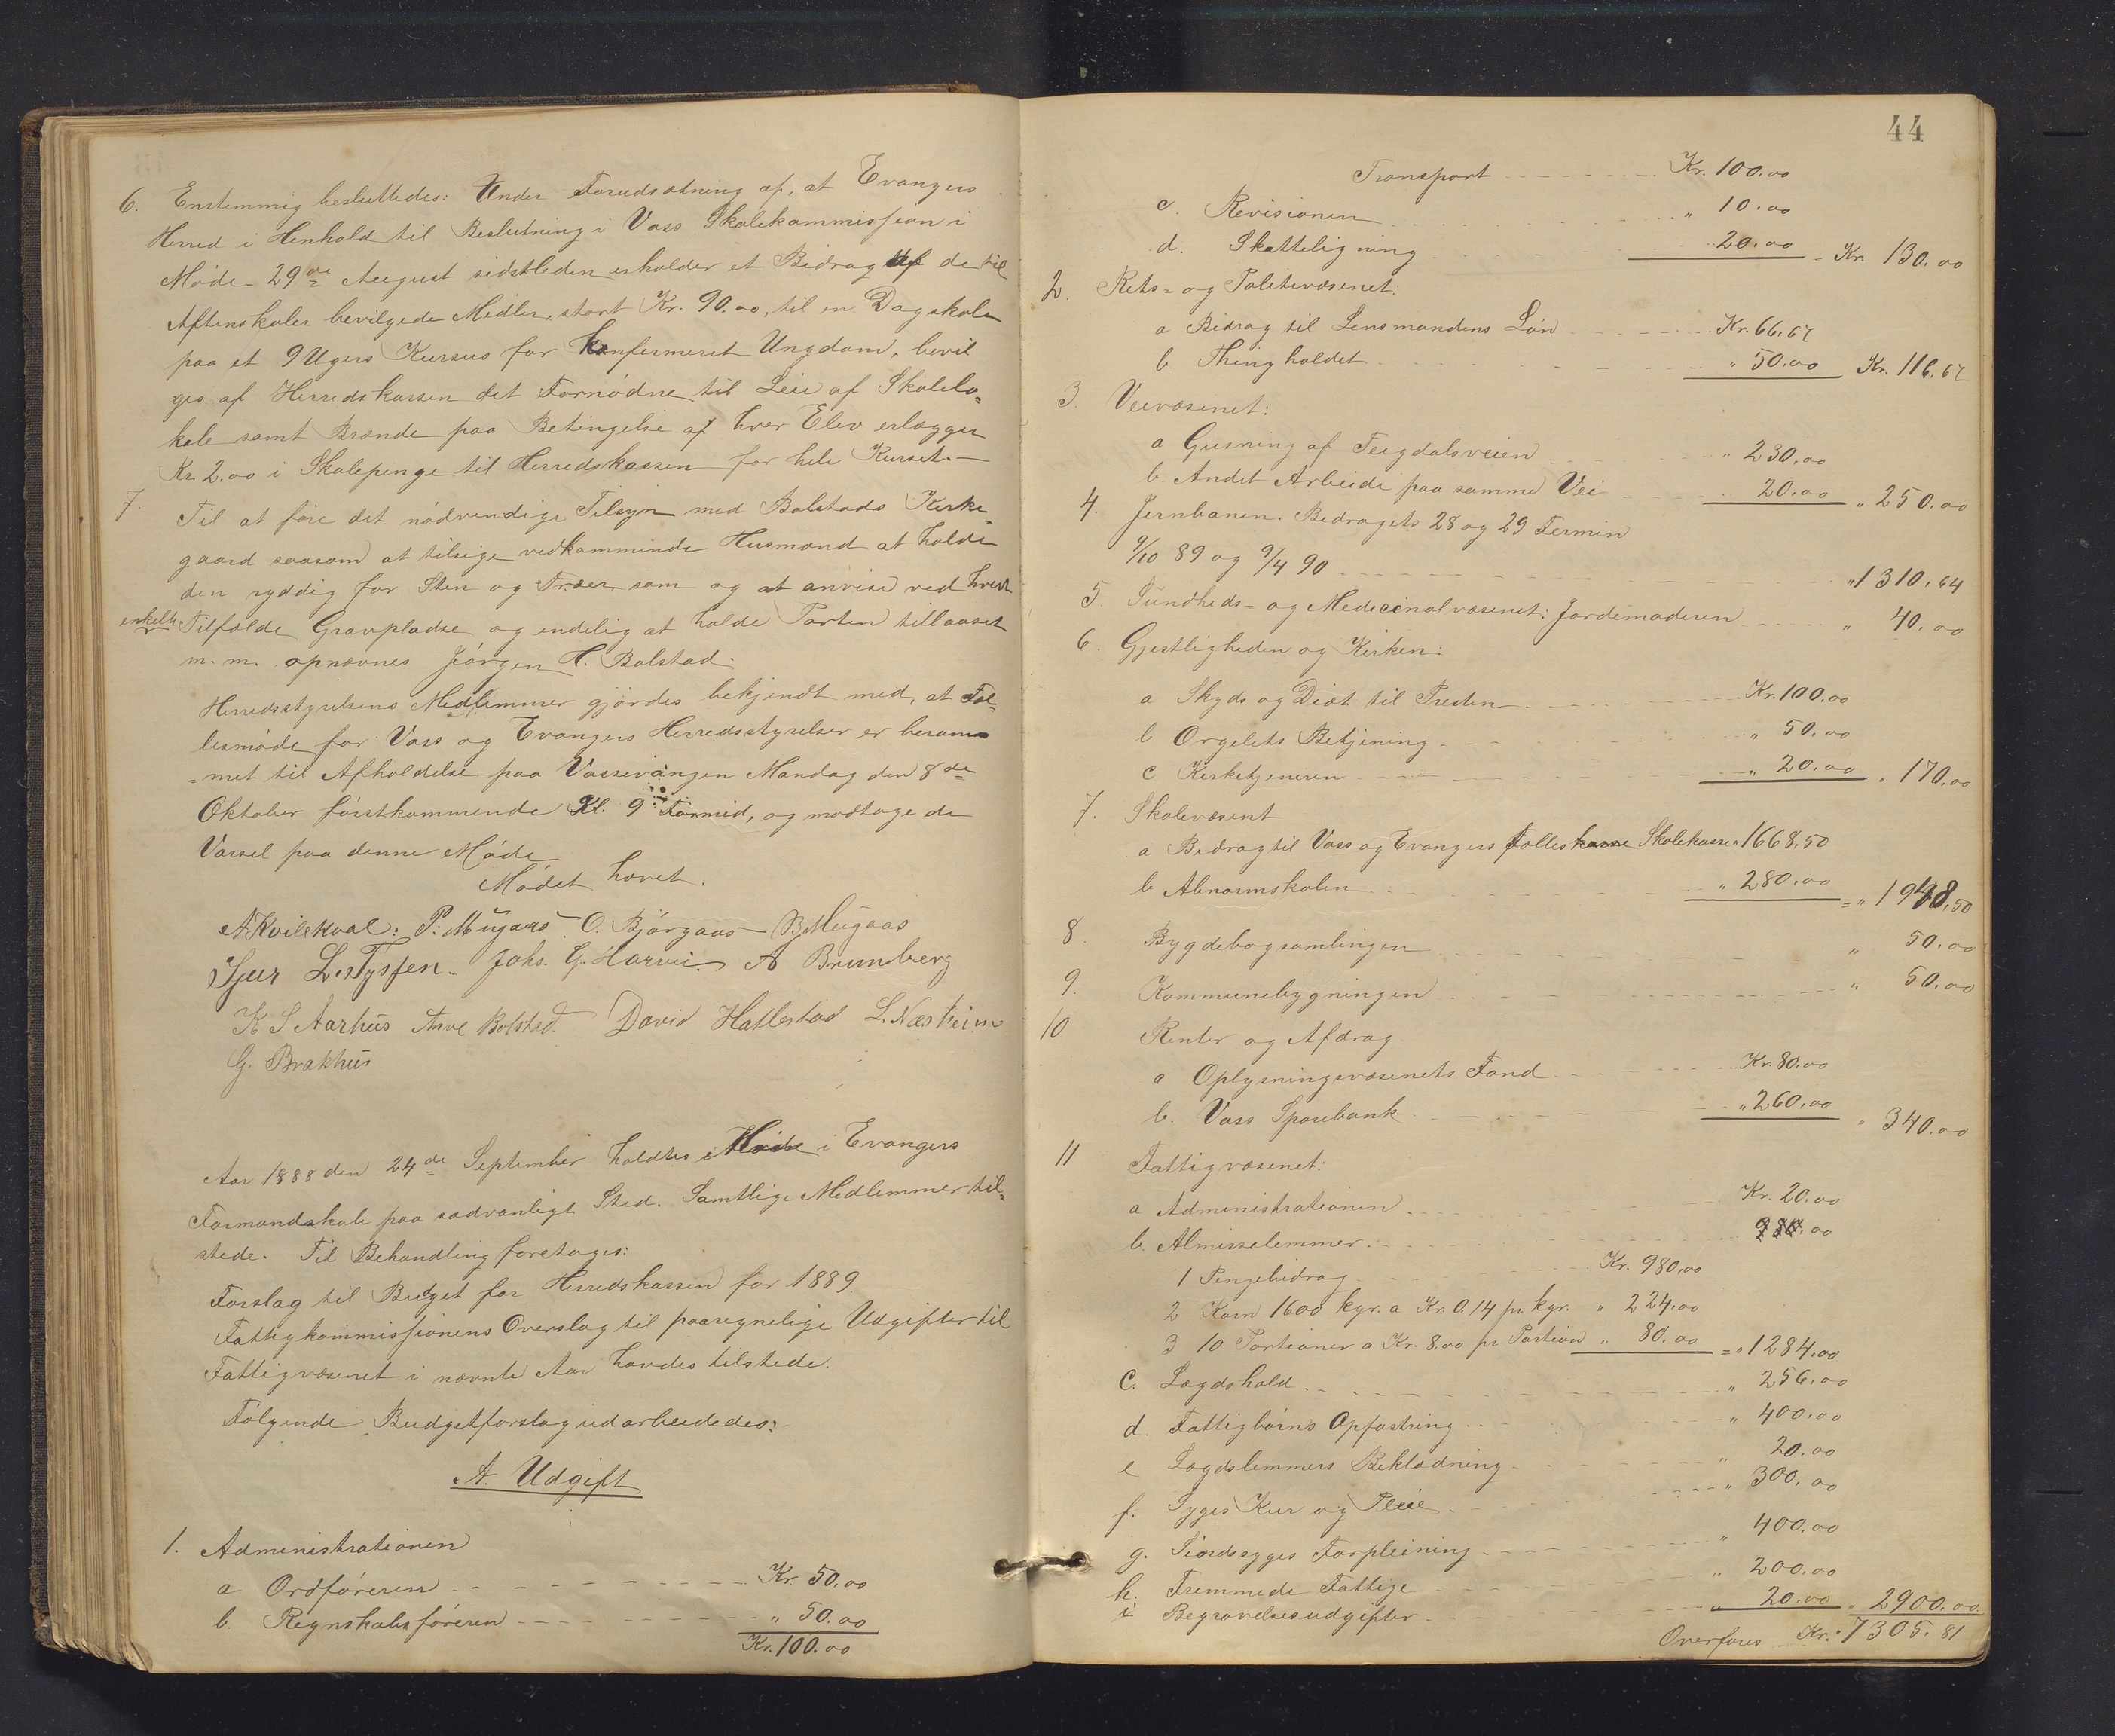 6. Enstemmig besluttedes: Under Forudsætning af, at Evangers
Herred i Henhold til Beslutning i Voss Skolekommission i
Møde 29de August sidstleden erholder et Bidrag af de til
Aftenskoler bevilgede Midler, stort Kr. 90.00, til en Dagskole
paa et 9 Ugers Kursus for konfirmeret Ungdom, bevil
ges af Herredskassen det Fornødne til Leie af Skolelo-
kale samt Brænde paa Betingelse af hver Elev erlægger
Kr. 2.00 i Skolepenge til Herredskassen for hele Kurset.—
7. Til at føre det nødvendige Tilsyn med Bolstads Kirke-
gaard saasom at tilsige vedkommende Husmænd at holde
den ryddig for Sten og Træer, som og at anvise ved hvert
enkelte Tilfælde Gravpladse og endelig at holde Porten tillaaset
m. m. opnævnes Jørgen H. Bolstad.
Herredsstyrelsens Medlemmer gjørdes bekjendt med, at Fæl-
lesmøde for Voss og Evangers Herredsstyrelser er beram-
-met til Afholdelse paa Vossevangen Mandag den 8de
Oktober førstkommende Kl. 9 Formid, og modtage de
Varsel paa denne Møde.
Mødet hævet.
A Kvilekval. P. Mugaas O. Bjørgaas B Mugaas
Sjur L. Tyssen. Johs. G. Horvei. A Brunborg
K S Aarhus Arve Bolstad. David Hatlestad L. Næsheim
G. Brakhus
Aar 1888 den 24de September holdtes Møde i Evangers
Formandskab paa sædvanligt Sted. Samtlige Medlemmer til-
stede. Til Behandling foretoges:
Forslag til Budget for Herredskassen for 1889.
Fattigkommissionens Overslag til paaregnelige Udgifter til
Fattigvæsenet i nævnte Aar havdes tilstede.
Følgende Budgetforslag udarbeidedes:
A. Udgift
1. Administrationen
a Ordføreren Kr. 50.00
b. Regnskabsføreren " 50.00
Kr. 100.00
44
Transport Kr. 100.00
c. Revisionen " 10.00
d. Skatteligning 20.00 = Kr. 130.00
2. Rets- og Politivæsenet:
a Bidrag til Lensmandens Løn Kr. 66.67
b Thingholdet " 50.00 Kr. 116.67
3. Veivæsenet:
a Grusning af Teigdalsveien " 230.00
b. Andet Arbeide paa samme Vei 20.00 " 250.00
4. Jernbanen. Bedragets 28 og 29 Termin
9/10 89 og 9/4 90 " 1310.64
5. Sundheds- og Medicinalvæsenet: Jordemoderen " 40.00
6. Gjestligheden og Kirken:
a Skyds og Diæt til Presten Kr. 100.00
b Orgelets Betjening " 50.00
c Kirketjeneren " 20.00 " 170.00
7. Skolevæsent
a Bedrag til Voss og Evangers Fælles kasse Skolekasse " 1668.50
b Abnormskolen " 280.00 = " 1948.50
8. Bygdebogsamlingen " 50.00
9. Kommunebygningen " 50.00
10 Renter og Afdrag
a Oplysningsvæsenets Fond Kr. 80.00
b. Voss Sparebank " 260.00 " 340.00
11 Fattigvæsenet:
a Administrationen Kr. 20.00
b. Almisselemmer.
1 Pengebidrag Kr. 980.00
2 Korn 1600 kgr. a Kr. 0.14 pr kgr. " 224.00
3 10 Portioner a Kr. 8.00 pr Portion " 80.00 = " 1284.00
c. Lægdshold " 256.00
d. Fattigbørns Opfostring " 400.00
e Lægdslemmers Beklædning " 20.00
f. Syges Kur og Pleie " 300.00
g. Sindssyges Forpleining " 400.00
h. Fremmede Fattige " 200.00
i Begravelsesudgifter " 20.00 " 2900.00
Overføres Kr. 7305.81